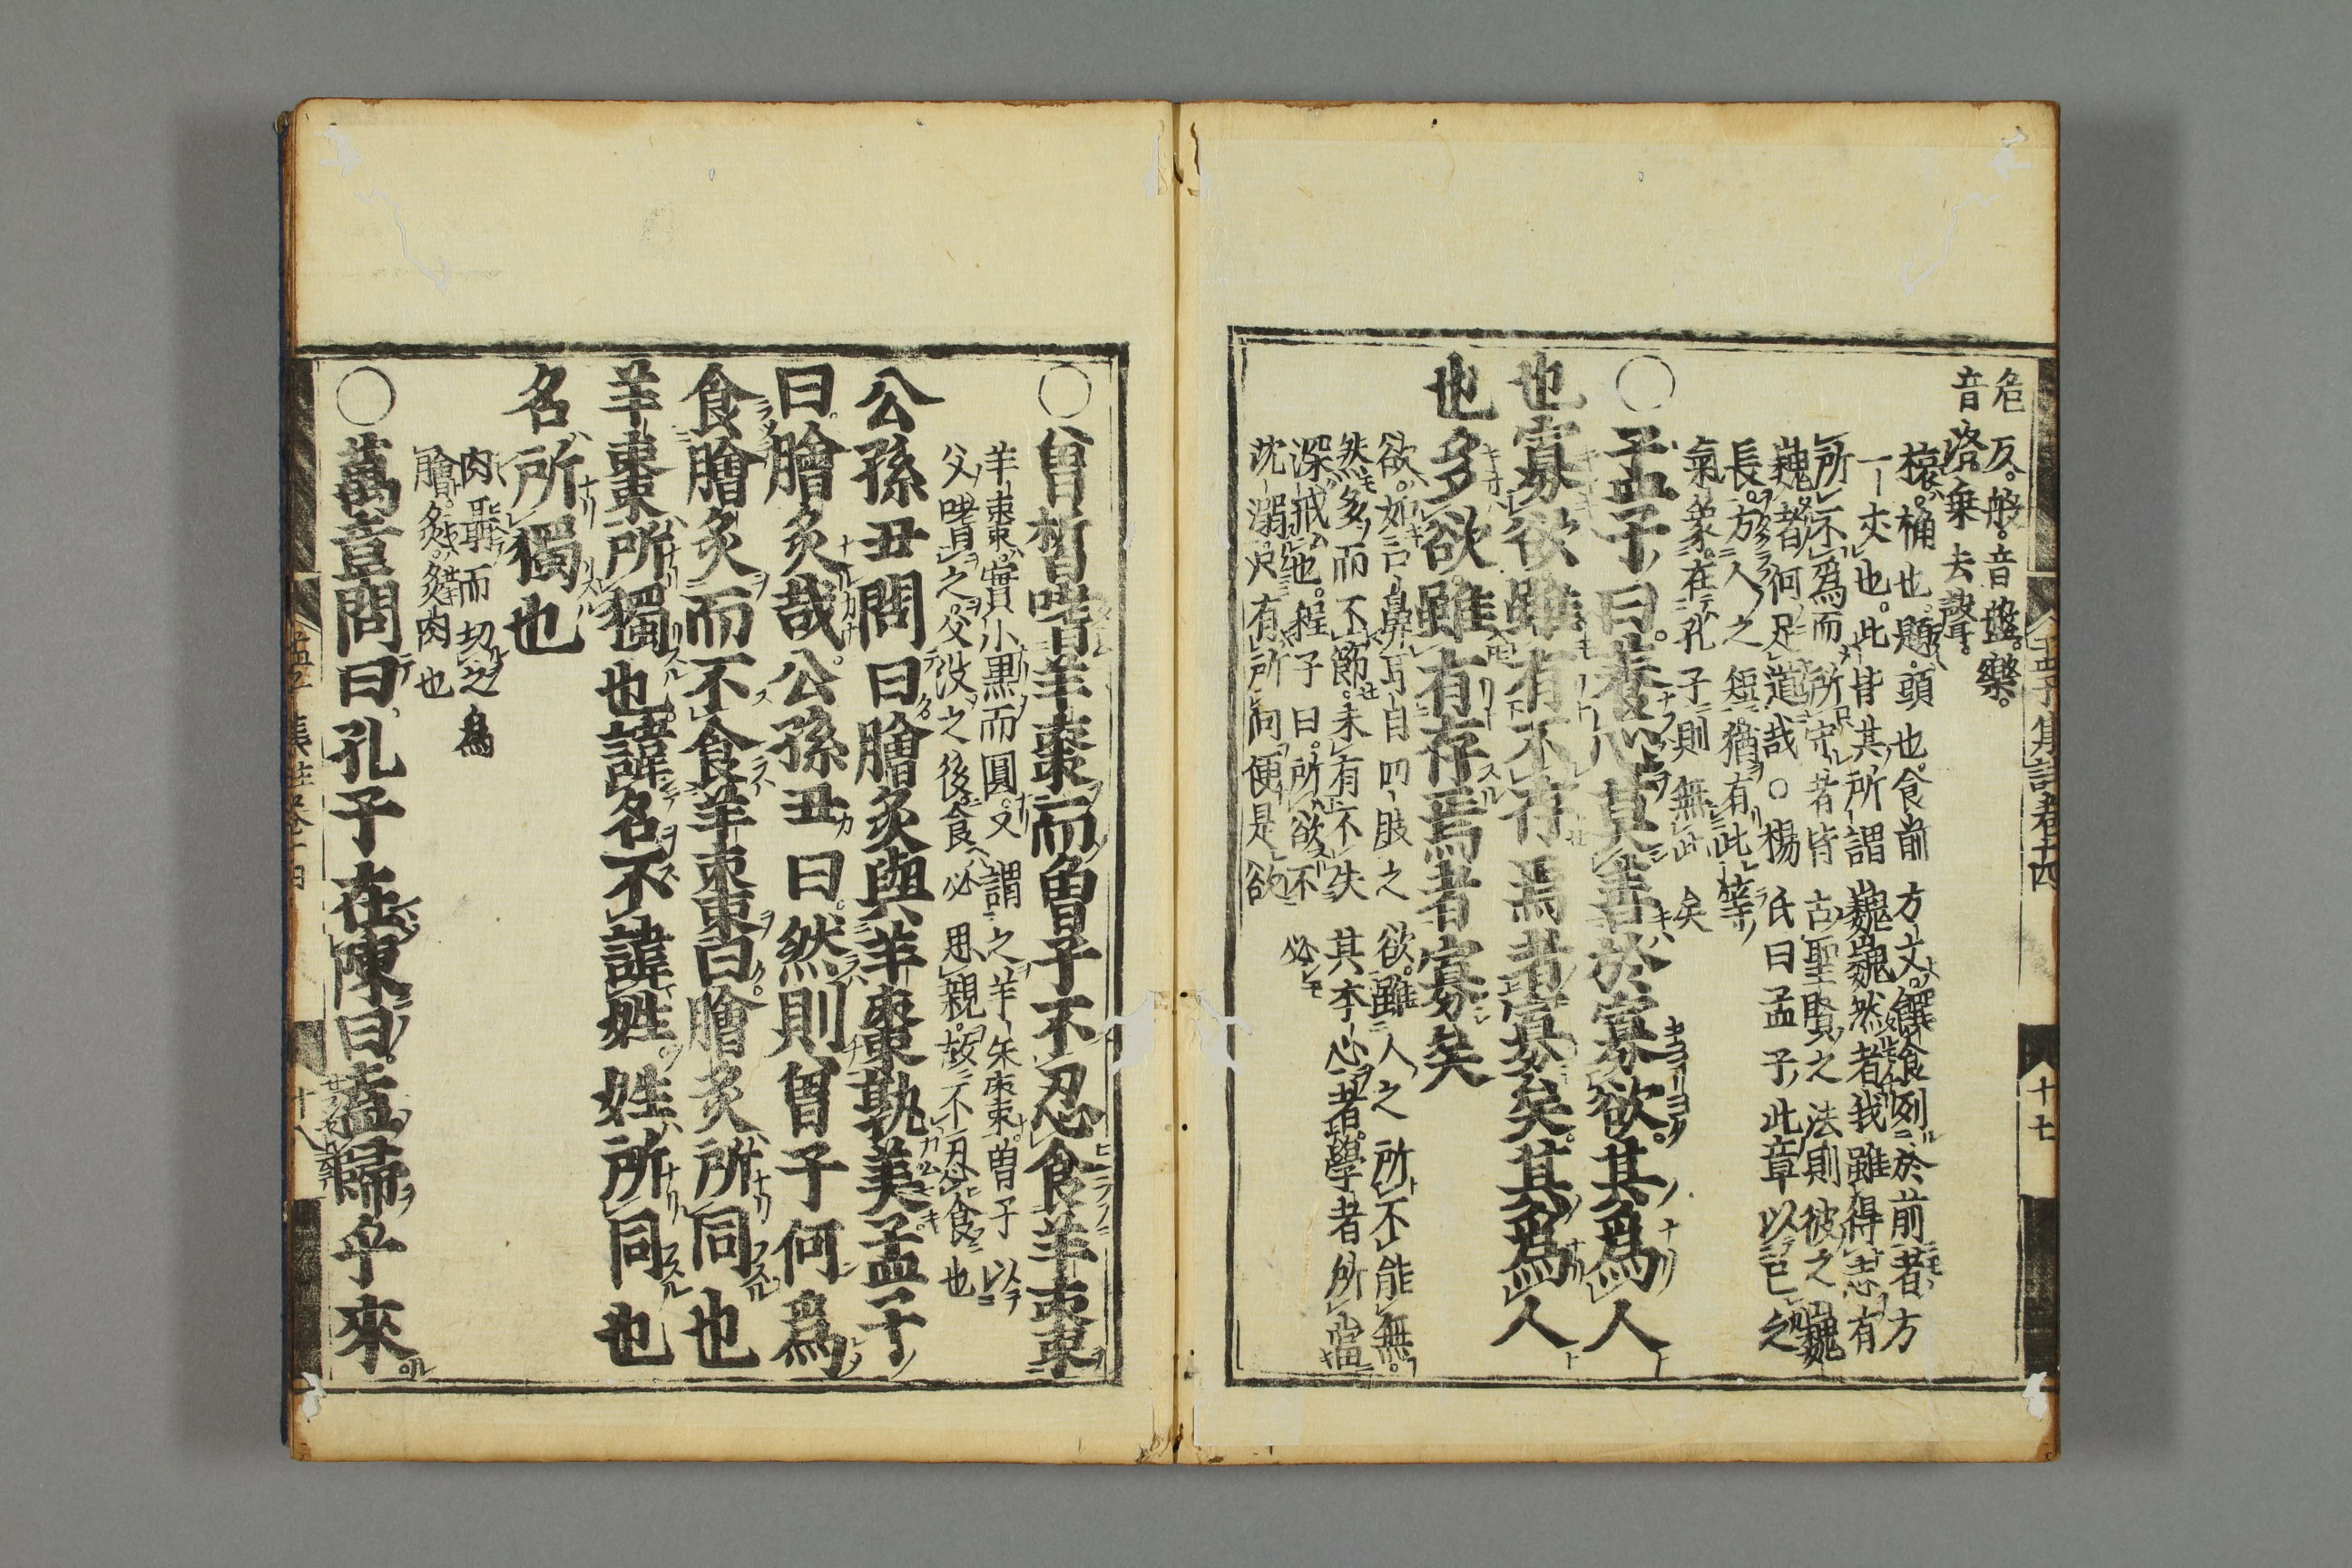 危反般音盤樂
音洛乘去聲
榱桷也題頭也食前方丈饌食列於前者方
一丈也此皆其所謂巍巍然者我雖得志有
所不爲而所守者皆古聖賢之法則彼之巍
巍者何足道哉○楊氏曰孟子此章以己之
長方人之短猶有此等
氣象在孔子則無此矣
○孟子曰養心莫善於寡欲其爲人
也寡欲雖有不存焉者寡矣其爲人
也多欲雖有存焉者寡矣
欲如口鼻耳目四肢之欲雖人之所不能無
然多而不節未有不失其本心者學者所當
深戒也程子曰所欲不必
沈溺只有所向便是欲
孟子集註卷十四 十七
○曾晳嗜羊棗而曾子不忍食羊棗
羊棗實小黒而圓又謂之羊矢棗曽子以
父嗜之父沒之後食必思親故不忍食也
公孫丑問曰膾炙與羊棗孰美孟子
曰膾炙哉公孫丑曰然則曾子何爲
食膾炙而不食羊棗曰膾炙所同也
羊棗所獨也諱名不諱姓姓所同也
名所獨也
肉聶而切之爲
膾炙炙肉也
○萬章問曰孔子在陳曰盍歸乎來
孟子集註卷十四 十八